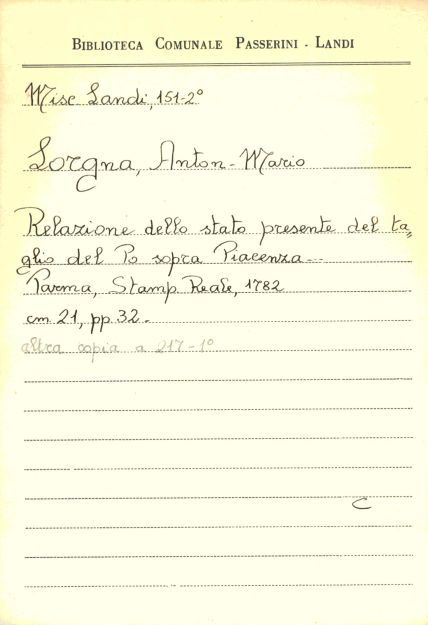 BIBLIOTECA COMUNALE PASSERINI - LANDI
Misc Landi, 151-2°
Lorgna, Anton-Mario
Relazione dello stato presente del ta=
glio del Po sopra Piacenza...
Parma, Stamp. Reale, 1782
cm 21, pp 32.
altra copia a 217-1°
C